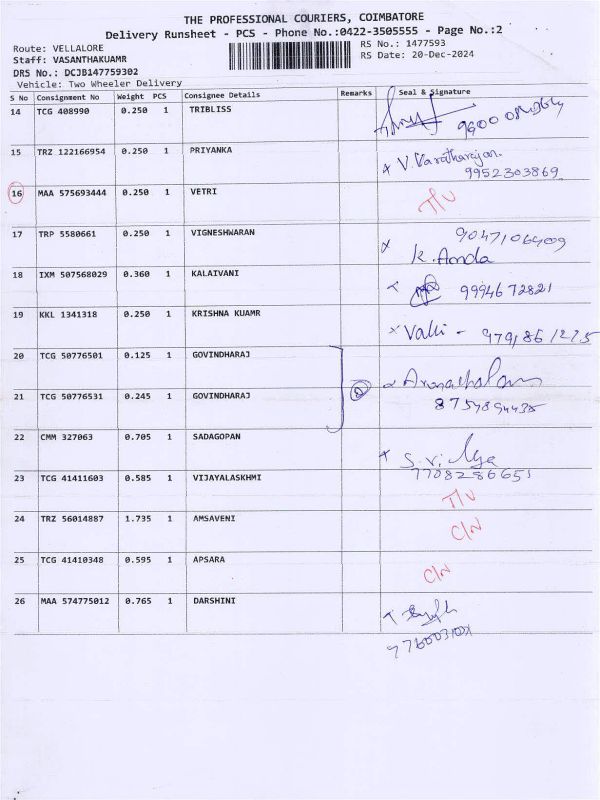 THE PROFESSIONAL COURIERS, COIMBATORE
Delivery Runsheet - PCS - Phone No.:0422-3505555 - Page No.:2
Route: VELLALORE
RS No.: 1477593
Staff: VASANTHAKUAMR
RS Date: 20-Dec-2024
DRS No.: DCJB147759302
Vehicle: Two Wheeler Delivery
S No Consignment No Weight PCS Consignee Details Remarks Seal & Signature
14 TCG 408990 0.250 1 TRIBLISS
15 TRZ 122166954 0.250 1 PRIYANKA x V.Varatharajan
9952303869
16 MAA 575693444 0.250 1 VETRI T/V
17 TRP 5580661 0.250 1 VIGNESHWARAN 9047106409
x K. Amda
18 IXM 507568029 0.360 1 KALAIVANI x 9994672821
19 KKL 1341318 0.250 1 KRISHNA KUAMR x Valli - 9791861275
20 TCG 50776501 0.125 1 GOVINDHARAJ
21 TCG 50776531 0.245 1 GOVINDHARAJ 8754894435
22 CMM 327063 0.705 1 SADAGOPAN x S. Vidya
7708286651
23 TCG 41411603 0.585 1 VIJAYALASKHMI T/V
24 TRZ 56014887 1.735 1 AMSAVENI C/N
25 TCG 41410348 0.595 1 APSARA C/N
26 MAA 574775012 0.765 1 DARSHINI x